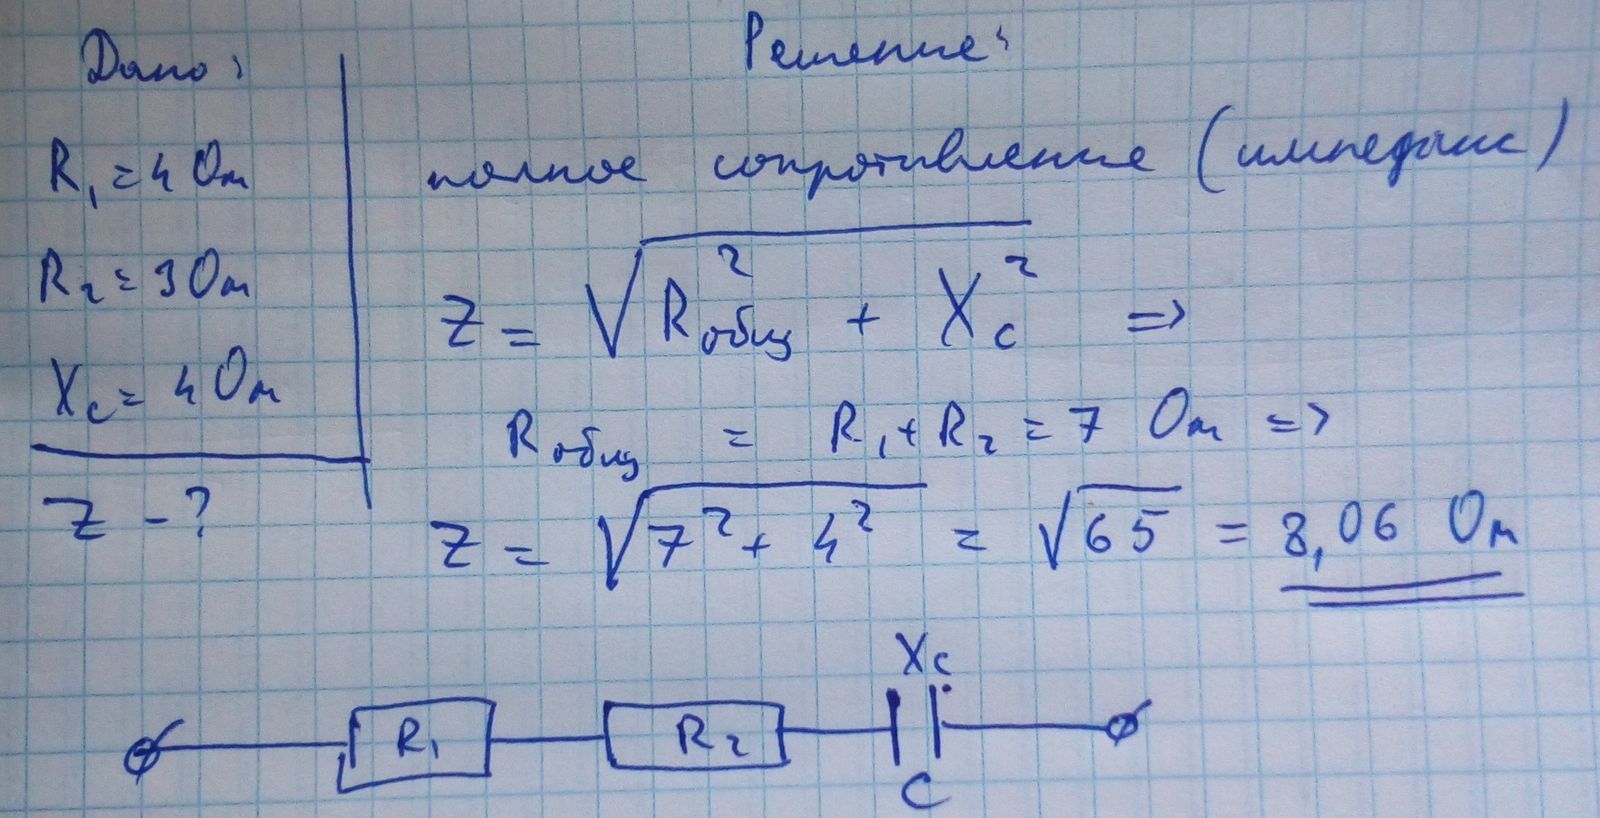 Дано:
R₁ = 4 Ом
R₂ = 3 Ом
Xc = 4 Ом
Z - ?
Решение:
полное сопротивление (импеданс)
Z = √(R²общ + Xc²) =>
Rобщ = R₁ + R₂ = 7 Ом =>
Z = √(7² + 4²) = √65 = 8,06 Ом
R₁ R₂ Xc
C